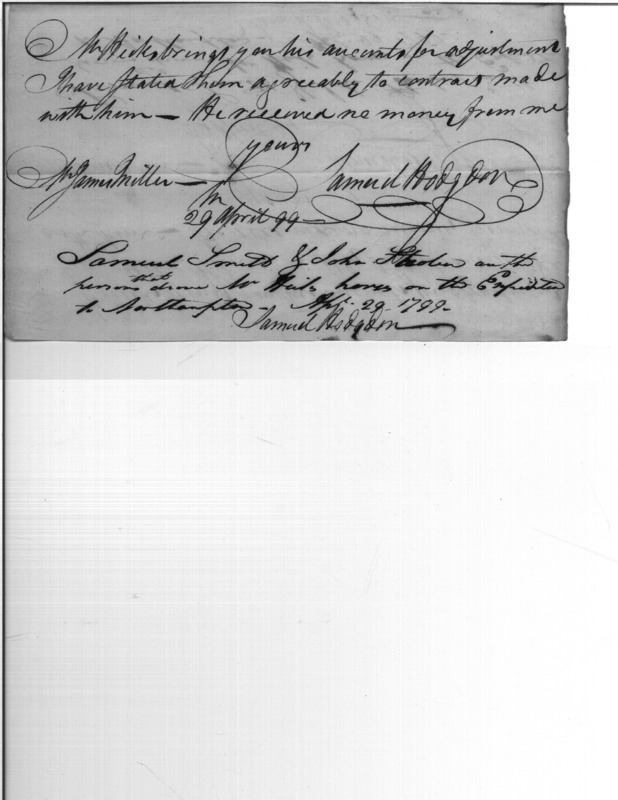 Mr Hicks brings you his accounts for adjustment
I have stated them agreeably to contract made
with him — He received no money from me
yours
Mr James Miller — Samuel Hodgdon
29 April 99 —
Samuel Smith & John are the
persons that drove Mr Hicks horses on the Expedition
to Northampton — Apl. 29 1799 —
Samuel Hodgdon